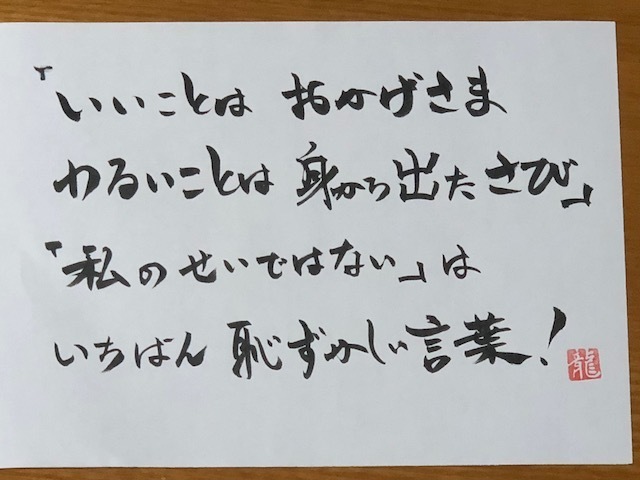 「いいことは おかげさま
わるいことは 身から出たさび」
「私のせいではない」は
いちばん 恥ずかしい言葉！
龍